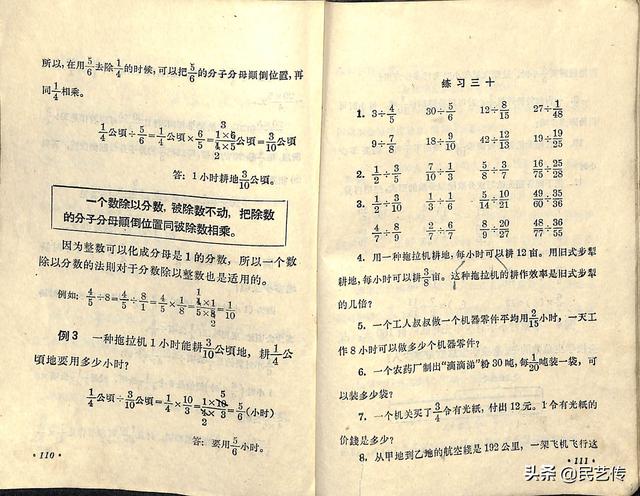 所以,在用5/6去除1/4的时候,可以把5/6的分子分母颠倒位置,再
同1/4相乘。
1/4公顷÷5/6=1/4公顷×6/5=(1×6)/(4×5)公顷=3/10公顷
3
2
答:1小时耕地3/10公顷。
一个数除以分数,被除数不动,把除数
的分子分母颠倒位置同被除数相乘。
因为整数可以化成分母是1的分数,所以一个数
除以分数的法则对于分数除以整数也是适用的。
例如:4/5÷8=4/5÷8/1=4/5×1/8=(4×1)/(5×8)=1/10
1
2
例3 一种拖拉机1小时能耕3/10公顷地,耕1/4公
顷地要用多少小时?
1/4公顷÷3/10公顷=1/4×10/3=(1×10)/(4×3)=5/6(小时)
5
2
答:要用5/6小时。
·110·
练习三十
1. 3÷4/5 30÷5/6 12÷8/15 27÷1/48
9÷7/8 18÷9/10 42÷12/13 19÷19/25
2. 1/2÷3/5 7/10÷1/3 5/8÷3/7 16/25÷25/28
3. 1/2÷3/10 1/3÷1/6 5/14÷10/21 49/60÷35/36
4/7÷8/9 2/7÷6/7 8/9÷20/27 48/77÷36/55
4. 用一种拖拉机耕地,每小时可以耕12亩。用旧式步犁
耕地,每小时可以耕3/8亩。这种拖拉机的耕作效率是旧式步犁
的几倍?
5. 一个工人叔叔做一个机器零件平均用2/15小时,一天工
作8小时可以做多少个机器零件?
6. 一个农药厂制出“滴滴涕”粉30吨,每1/20吨装一袋,可
以装多少袋?
7. 一个机关买了3/4令有光纸,付出12元。1令有光纸的
价錢是多少?
8. 从甲地到乙地的航空綫是192公里,一架飞机飞行这
·111·
头条 @民艺传